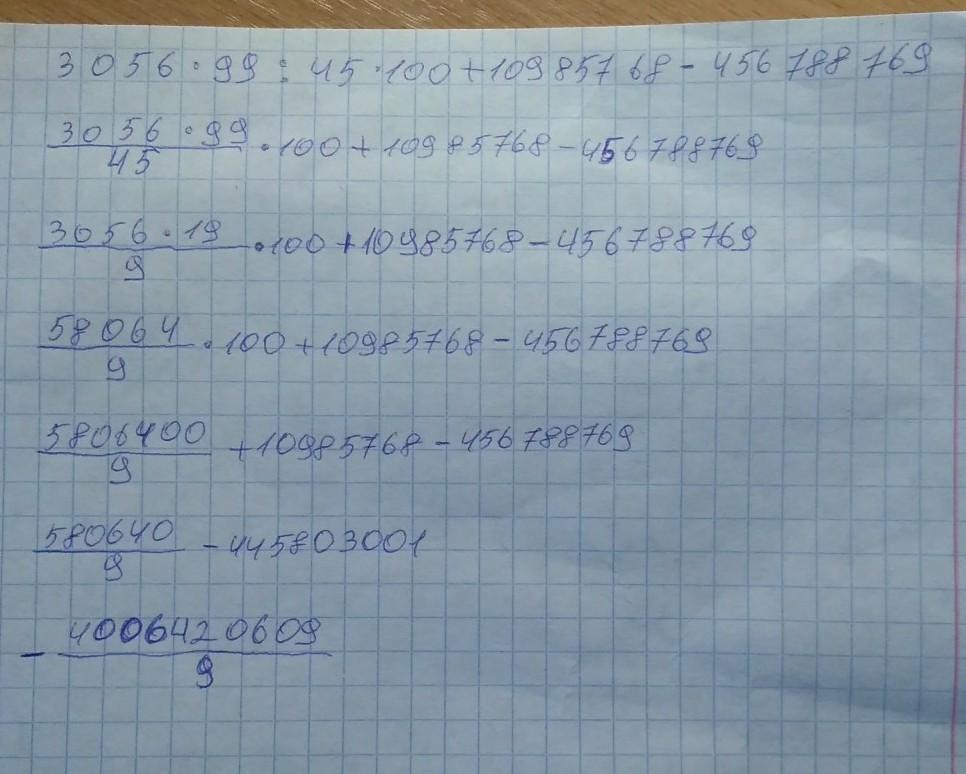 3056 · 99 : 45 · 100 + 10985768 - 456788769
3056 · 99 / 45 · 100 + 10985768 - 456788769
3056 · 19 / 9 · 100 + 10985768 - 456788769
58064 / 9 · 100 + 10985768 - 456788769
5806400 / 9 + 10985768 - 456788769
580640 / 9 - 445803001
- 4006420609 / 9